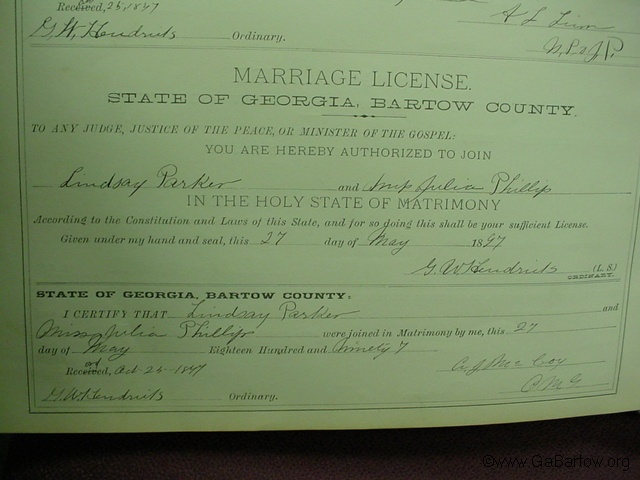 Received, 25, 1897
G. W. Hendricks Ordinary.
N.P. & J.P.
MARRIAGE LICENSE.
STATE OF GEORGIA, BARTOW COUNTY.
TO ANY JUDGE, JUSTICE OF THE PEACE, OR MINISTER OF THE GOSPEL:
YOU ARE HEREBY AUTHORIZED TO JOIN
Lindsay Parker and Miss Julia Phillips
IN THE HOLY STATE OF MATRIMONY
According to the Constitution and Laws of this State, and for so doing this shall be your sufficient License.
Given under my hand and seal, this 27 day of May 1897
G. W Hendricks (L. S.)
ORDINARY.
STATE OF GEORGIA, BARTOW COUNTY:
I CERTIFY THAT Lindsay Parker and
Miss Julia Phillips were joined in Matrimony by me, this 27
day of May Eighteen Hundred and ninety 7
Received, Oct 25 1897
G W Hendricks Ordinary.
©www.GaBartow.org